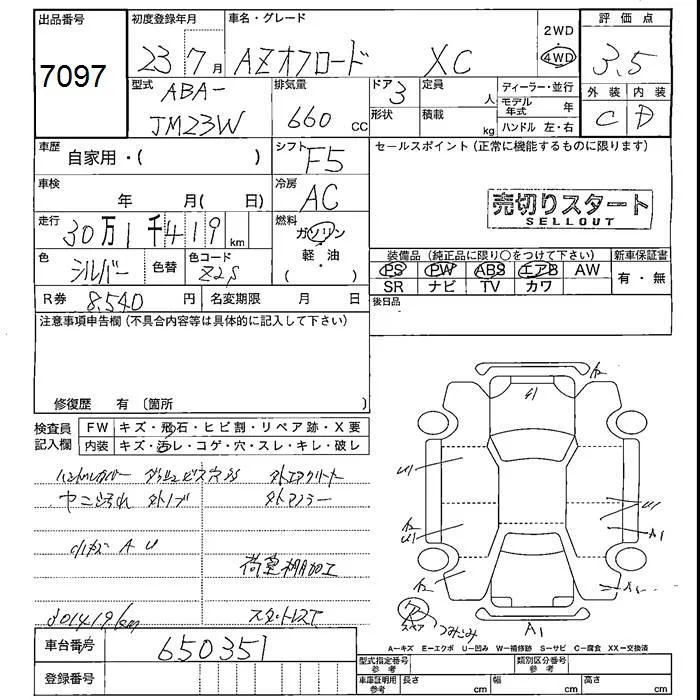 出品番号
7097
初度登録年月
23 7月
車名・グレード
AZオフロード XC
2WD
4WD
評価点
3.5
外装 内装
C D
型式
ABA-
JM23W
排気量
660 cc
ドア 3
形状
定員 人
積載 kg
ディーラー・並行
モデル年式 年
ハンドル 左・右
車歴
自家用・( )
シフト
F5
セールスポイント(正常に機能するものに限ります)
売切りスタート
SELLOUT
車検
年 月( 日)
冷房
AC
走行
30万1千419km
燃料
ガソリン
軽・油
( )
色
シルバー
色替
色コード
Z2S
装備品(純正品に限り○をつけて下さい)
新車保証書
PS PW ABS エアB AW
SR ナビ TV カワ
有・無
R券 8,540 円
名変期限 月 日
後日品
注意事項申告欄(不具合内容等は具体的に記入して下さい)
修復歴 有 〔箇所 〕
検査員記入欄
FW キズ・飛石・ヒビ割・リペア跡・X要
内装 キズ・汚レ・コゲ・穴・スレ・キレ・破レ
ハンドルカバー ダッシュビス穴 外エアクリーナー
ヤニ汚れ 外ノブ 外マフラー
小キズ A U
荷室棚加工
301419km スタッドレスT
U1
U1
U1
U1
A1
A1
スペア
つみこみ
A-キズ E-エクボ U-凹み W-補修跡 S-サビ C-腐食 XX-交換済
車台番号
650351
登録番号
型式指定番号 参考
類別区分番号 参考
車庫証明用 参考
長さ cm
幅 cm
高さ cm